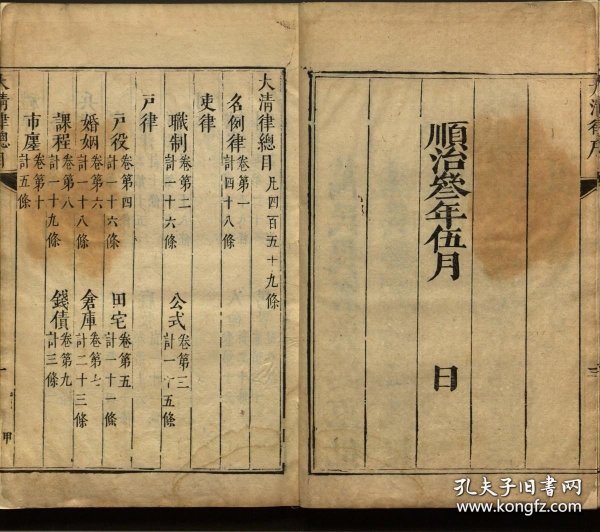 大清律序
順治叄年伍月 日
大清律總目 凡四百五十九條
名例律 卷第一 計四十八條
吏律
職制 卷第二 計一十六條 公式 卷第三 計一十五條
户律
户役 卷第四 計一十六條 田宅 卷第五 計一十一條
婚姻 卷第六 計一十八條 倉庫 卷第七 計二十三條
課程 卷第八 計一十九條 錢債 卷第九 計三條
市廛 卷第十 計五條
大清律總目
一
甲
孔夫子旧书网
www.kongfz.com